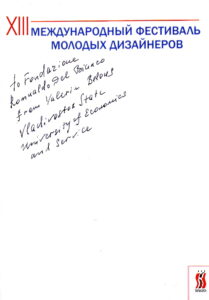 XIII МЕЖДУНАРОДНЫЙ ФЕСТИВАЛЬ
МОЛОДЫХ ДИЗАЙНЕРОВ
to Fondazione
Romualdo Del Bianco
from Valeriu Belous
Vladivostok State
University of Economics
and Service